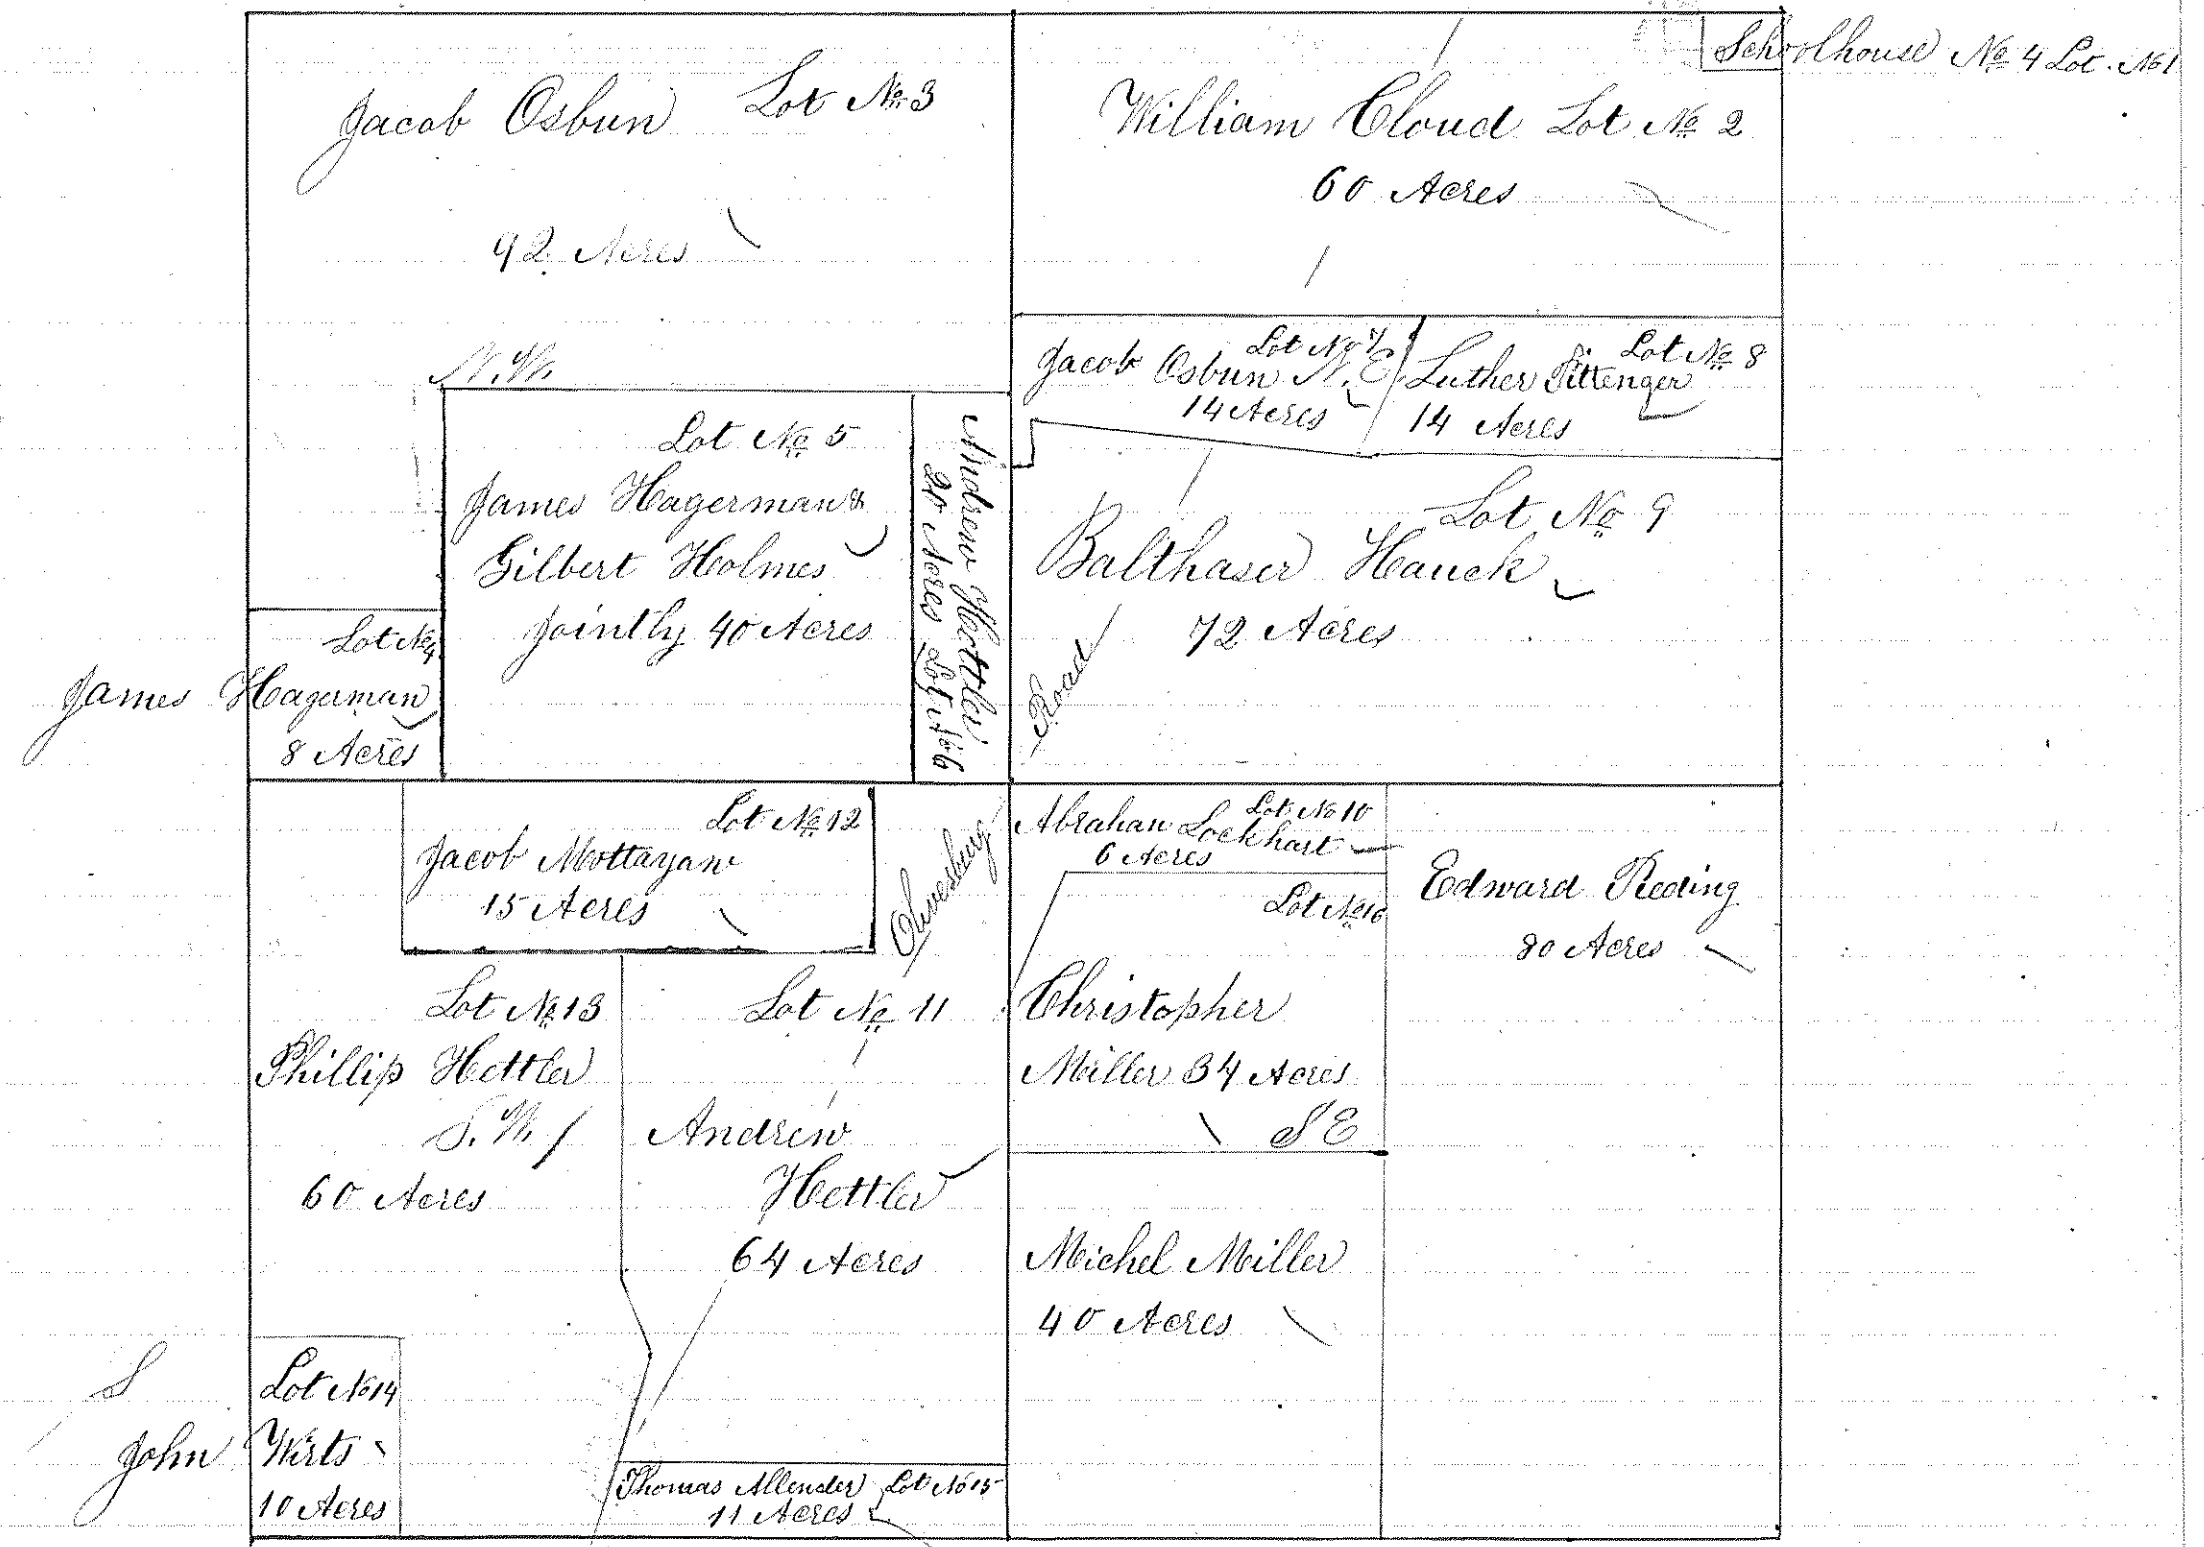 Schoolhouse No 4 Lot. No 1
Jacob Osbun Lot No 3
92 Acres
N.W.
William Cloud Lot No 2
60 Acres
Lot No 7
Jacob Osbun N.E
14 Acres
Lot No 8
Luther Pittenger
14 Acres
Lot No 5
James Hagerman &
Gilbert Holmes
Jointly 40 Acres
Andrew Hettler
20 Acres Lot No 6
Lot No 9
Balthaser Hauck
72 Acres
Road
Lot No 4
James Hagerman
8 Acres
Lot No 12
Jacob Mottayaw
15 Acres
Olivesburg
Lot No 10
Abraham Lockhart
6 Acres
Lot No 16
Christopher
Miller 34 Acres
S E
Edward Reding
80 Acres
Lot No 13
Phillip Hettler
S. W.
60 Acres
Lot No 11
Andrew
Hettler
64 Acres
Michel Miller
40 Acres
S
Lot No 14
John Wirts
10 Acres
Thomas Allender Lot No 15
11 Acres